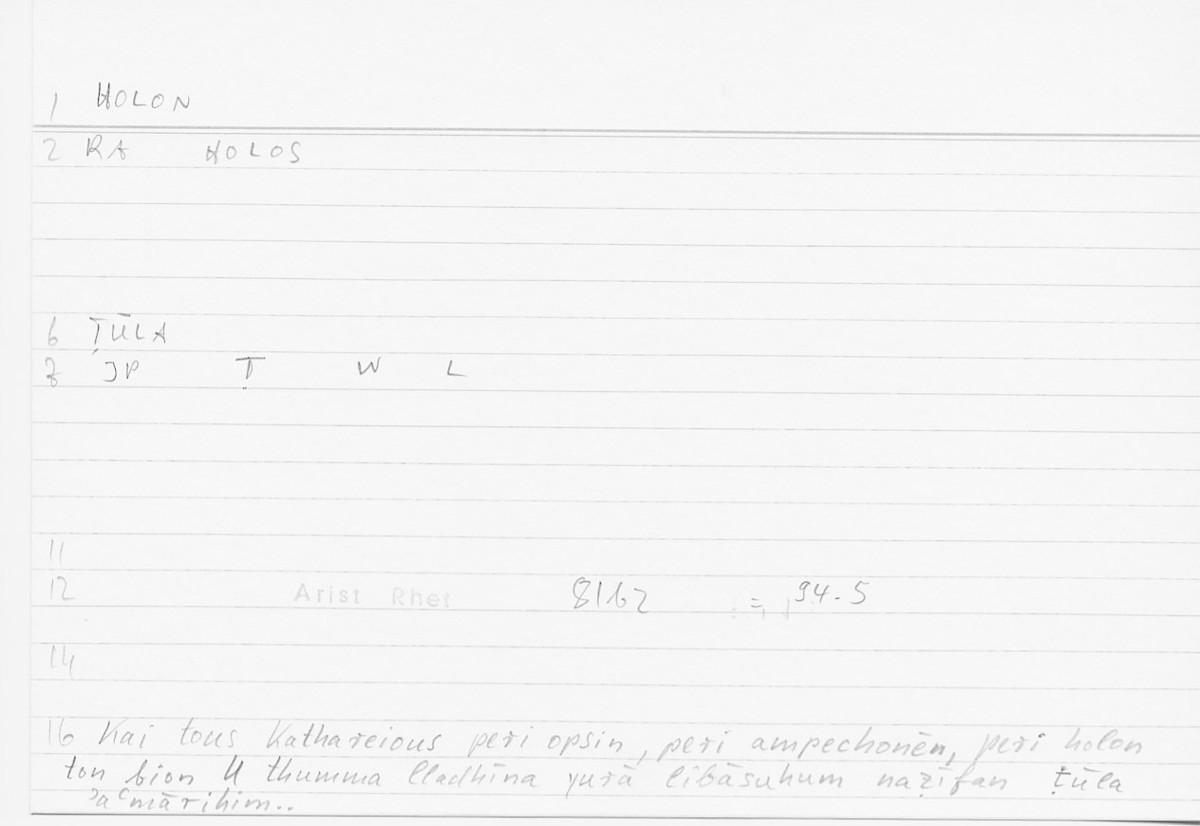 1 HOLON
2 RA HOLOS
6 ṬŪLA
7 JP Ṭ W L
11
12 Arist Rhet 8162 = 94.5
14
16 Kai tous Kathareious peri opsin, peri ampechonēn, peri holon
ton bion U thumma lladhīna yurā libāsuhum naẓīfan ṭūla
ʾaʿmārihim..